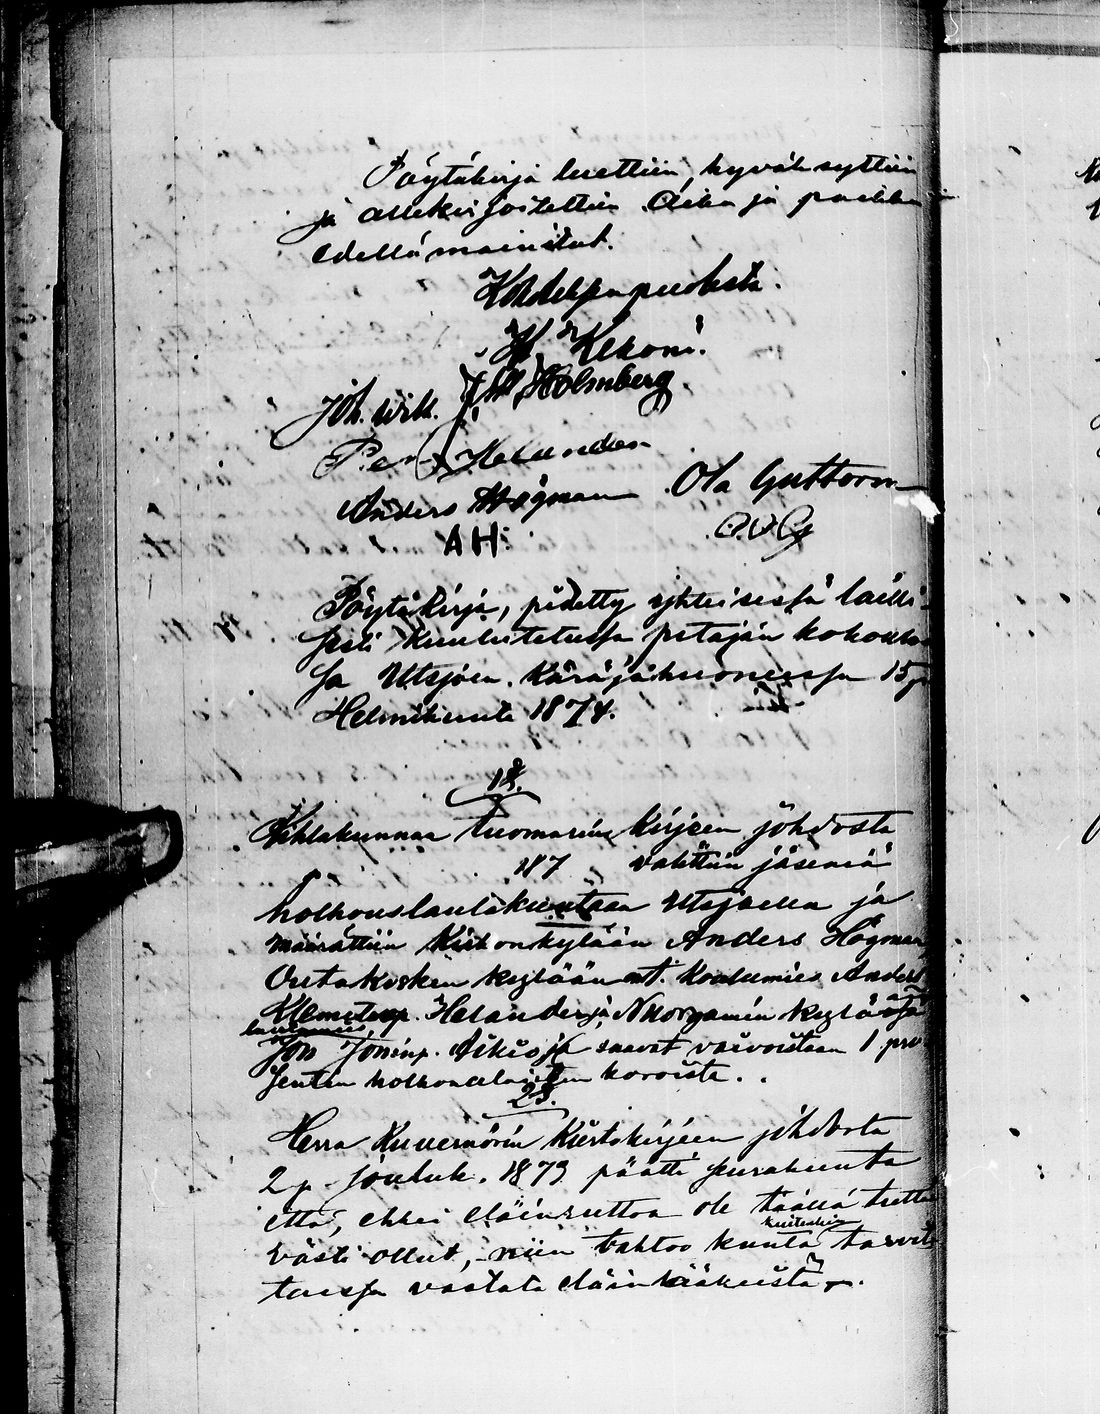 Pöytäkirja luettiin, hyväksyttiin
ja allekirjoitettiin. Aika ja paikka
edellä mainitut.
Kohdeltan puolesta.
Kekoni.
Joh. Wilh. Holmberg
Helander
Anders Högman Ola Guttorm
AH: O.G
Pöytäkirja, pidetty yhteisessä lailli-
sesti kuulutetussa pitäjän kokoukses
sa Utsjoen Käräjähuoneessa 15 p
Helmikuuta 1874.
1§.
Kihlakunnan tuomarin kirjeen johdosta
187 valittiin jäseniä
holhouslautakuntaan Utsjoella ja
määrättiin Kirkonkylään Anders Högman,
Outakosken kylään ent. koulumies Anders
Klemetinp. Helander ja Nuorgamin kylään
lautamies
Jon Joninp. Aikio ja saavat vaivoistaan 1 pro
sentin holhoualaisten koroista.
2§.
Herra Kuvernörin Kiertokirjeen johdosta
2 p. Jouluk. 1873 päätti seurakunta
että, ehkei eläinruttoa ole täällä tiettä
kuitenkin
västi ollut, niin tahtoo kunta tarvit
taissa vastata eläinlääkäristä.